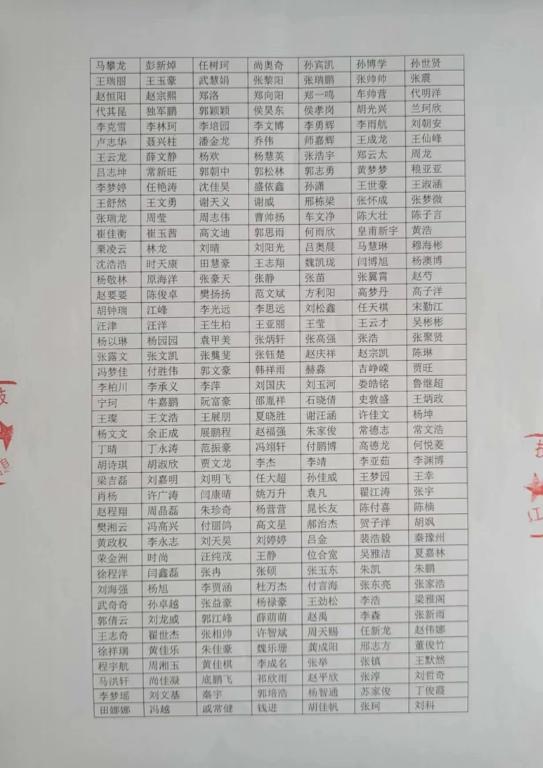 马攀龙 彭新焯 任树珂 尚奥奇 孙宾凯 孙博学 孙世贤
王瑞丽 王玉豪 武慧娟 张黎阳 张瑞鹏 张帅帅 张震
赵恒阳 赵宗熙 郑洛 郑向阳 郑一鸣 车帅营 代明洋
代其昆 独军鹏 郭颖颖 侯昊东 侯孝岗 胡光兴 兰珂欣
李克雪 李林珂 李培园 李文博 李勇辉 李雨航 刘朝安
卢志华 聂兴柱 潘金龙 乔伟 师嘉辉 王成龙 王仙峰
王云龙 薛文静 杨欢 杨慧英 张浩宇 郑云太 周龙
吕志坤 常新旺 郭朝中 郭松林 郭志勇 黄梦梦 稂亚亚
李梦婷 任艳涛 沈佳昊 盛依鑫 孙潇 王世豪 王淑涵
王舒然 王文勇 谢天义 谢威 邢栋梁 张怀成 张梦微
张瑞龙 周莹 周志伟 曹帅扬 车文净 陈大壮 陈子言
崔佳衡 崔玉茜 高文迪 郭思雨 何雨欣 皇甫新宇 黄浩
栗凌云 林龙 刘晴 刘阳光 吕奥晨 马慧琳 穆海彬
沈浩浩 时天康 田慧豪 王志翔 魏凯珑 闫博旭 杨澳博
杨敬林 原海洋 张豪天 张静 张苗 张翼霄 赵芍
赵要要 陈俊卓 樊扬扬 范文斌 方利阳 高梦丹 高子洋
胡钟瑞 江峰 李光远 李思远 刘松鑫 任天祺 宋勤江
汪津 汪洋 王生柏 王亚丽 王莹 王云才 吴彬彬
杨以琳 杨园园 袁甲美 张炳轩 张高强 张浩 张聚贤
张露文 张文凯 张龑斐 张钰楚 赵庆祥 赵宗凯 陈琳
冯梦佳 付胜伟 郭文豪 韩祥雨 赫淼 吉峥嵘 贾旺
李柏川 李承义 李萍 刘国庆 刘玉河 娄皓铭 鲁继超
宁珂 牛嘉鹏 阮富豪 邵胤祥 石晓倩 史敦盛 王炳政
王璨 王文浩 王展朋 夏晓胜 谢汪涵 许佳文 杨坤
杨文文 余正成 展鹏程 赵福强 朱家俊 常德志 常文浩
丁晴 丁永涛 范振豪 冯翊轩 付鹏博 高德龙 何悦菱
胡诗琪 胡淑欣 贾文龙 李杰 李靖 李亚茹 李渊博
梁吉磊 刘嘉明 刘明飞 任大超 孙佳威 王梦园 王幸
肖杨 许广涛 闫康晴 姚万升 袁凡 翟江涛 张宇
赵程翔 周晶磊 朱珍奇 杨营营 晁长友 陈付喜 陈柚
樊湘云 冯高兴 付丽鸽 高文星 郝治杰 贺子洋 胡飒
黄政权 李永志 刘天昊 刘婷婷 吕金 裴浩毅 秦豫州
荣金洲 时尚 汪纯茂 王静 位合宽 吴雅洁 夏嘉林
徐程洋 闫鑫磊 张冉 张硕 张玉东 朱凯 朱鹏
刘海强 杨旭 李贾涵 杜万杰 付言海 张东亮 张家浩
武奇奇 孙卓越 张益豪 杨禄豪 王劲松 李浩 梁雅阁
郭倩云 刘龙威 郭江峰 薛萌萌 赵禹 李森 张新雨
王志奇 翟世杰 张相帅 许智斌 周天赐 任新龙 赵伟娜
徐祥瑞 黄佳乐 朱佳豪 魏乐珊 龚成阳 邢志方 董俊竹
程宇航 周湘玉 黄佳棋 李成名 张举 张镇 王默然
马洪轩 尚佳凝 底鹏飞 祁欣雨 赵平欣 张淳 刘哲奇
李梦瑶 刘文基 秦宇 郭培浩 杨智通 苏家俊 丁俊霞
田娜娜 冯越 戚常健 钱进 胡佳帆 张珂 刘科